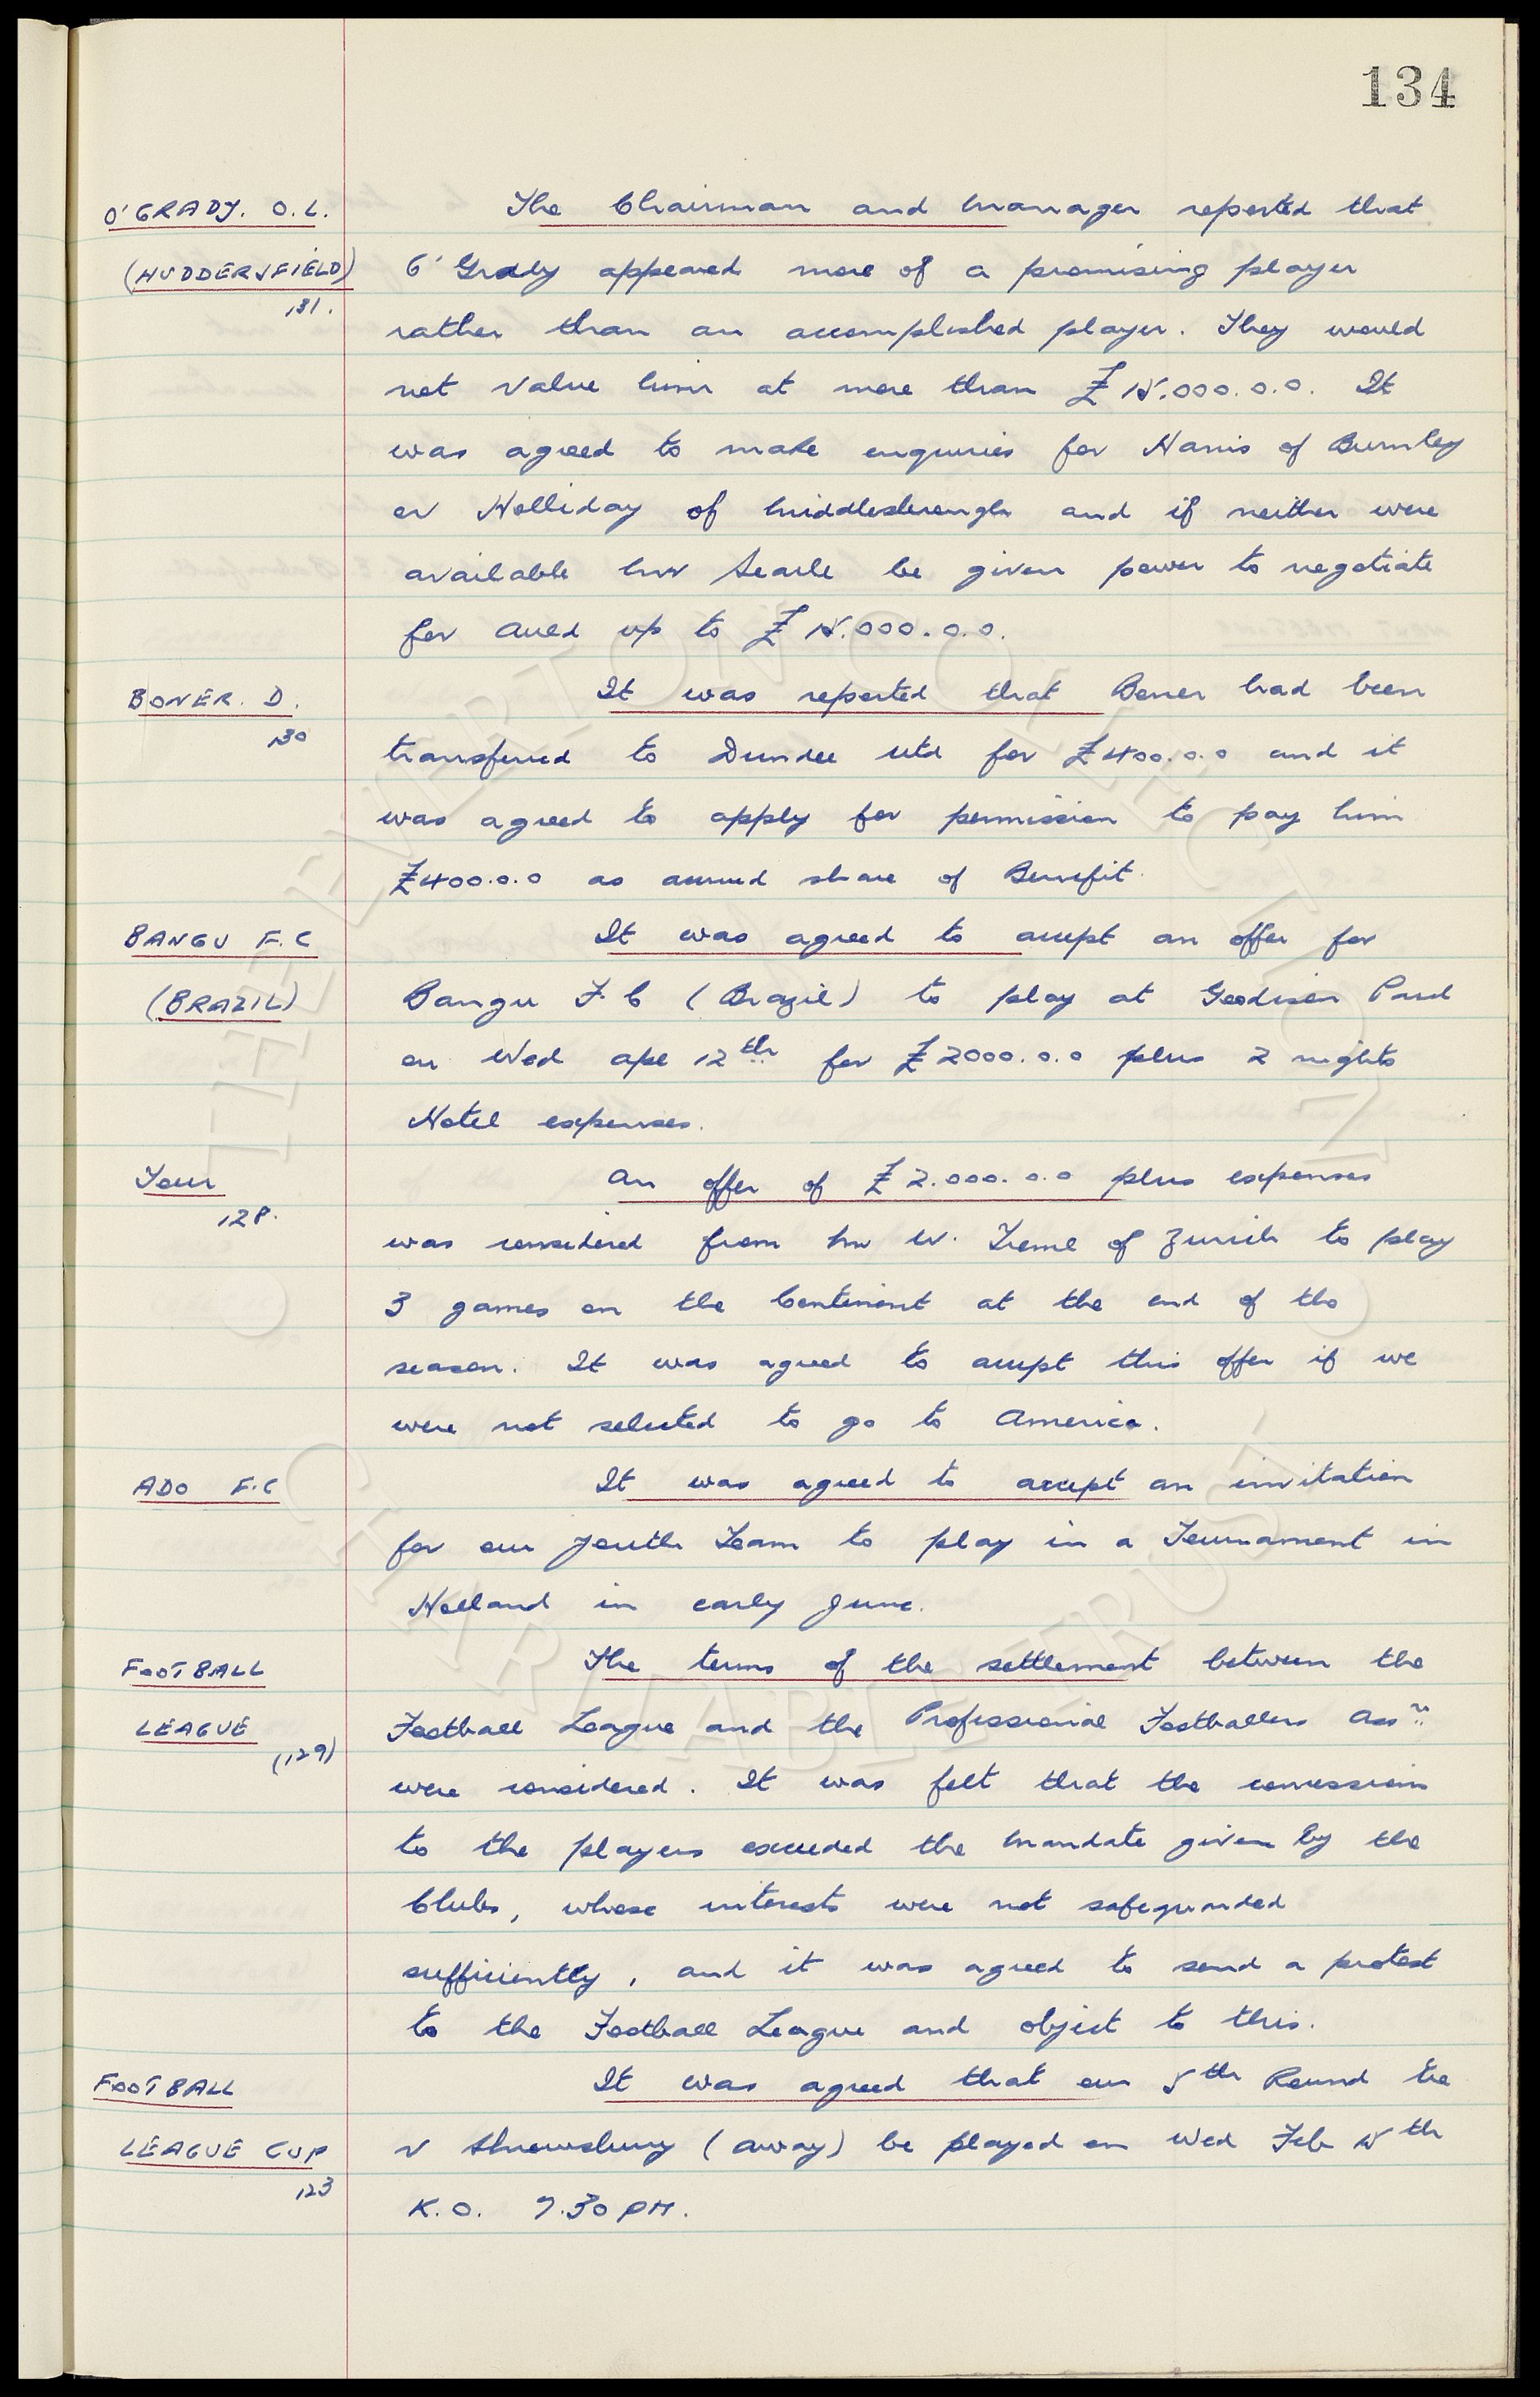 134
O'GRADY. O.L. The Chairman and Manager reported that
(HUDDERSFIELD) O'Grady appeared more of a promising player
131. rather than an accomplished player. They would
not value him at more than £15.000.0.0. It
was agreed to make enquiries for Harris of Burnley
or Holliday of Middlesbrough and if neither were
available Mr Searle be given power to negotiate
for Auld up to £15.000.0.0.
BONER. D. It was reported that Boner had been
130 transferred to Dundee utd for £400.0.0 and it
was agreed to apply for permission to pay him
£400.0.0 as accrued share of Benefit.
BANGU F.C It was agreed to accept an offer for
(BRAZIL) Bangu F.C (Brazil) to play at Goodison Park
on Wed Apl 12th for £2000.0.0 plus 2 nights
Hotel expenses.
Tour An offer of £2.000.0.0 plus expenses
128. was considered from Mr W. of Zurich to play
3 games on the Continent at the end of the
season. It was agreed to accept this offer if we
were not selected to go to America.
ADO F.C It was agreed to accept an invitation
for our Youth Team to play in a Tournament in
Holland in early June.
FOOTBALL The terms of the settlement between the
LEAGUE Football League and the Professional Footballers Assn
(129) were considered. It was felt that the concession
to the players exceeded the mandate given by the
Clubs, whose interests were not safeguarded
sufficiently, and it was agreed to send a protest
to the Football League and object to this.
FOOTBALL It was agreed that our 5th Round tie
LEAGUE CUP v Shrewsbury (away) be played on Wed Feb 15th
123 K.O. 7.30 PM.
THE EVERTON COLLECTION
CHARITABLE TRUST